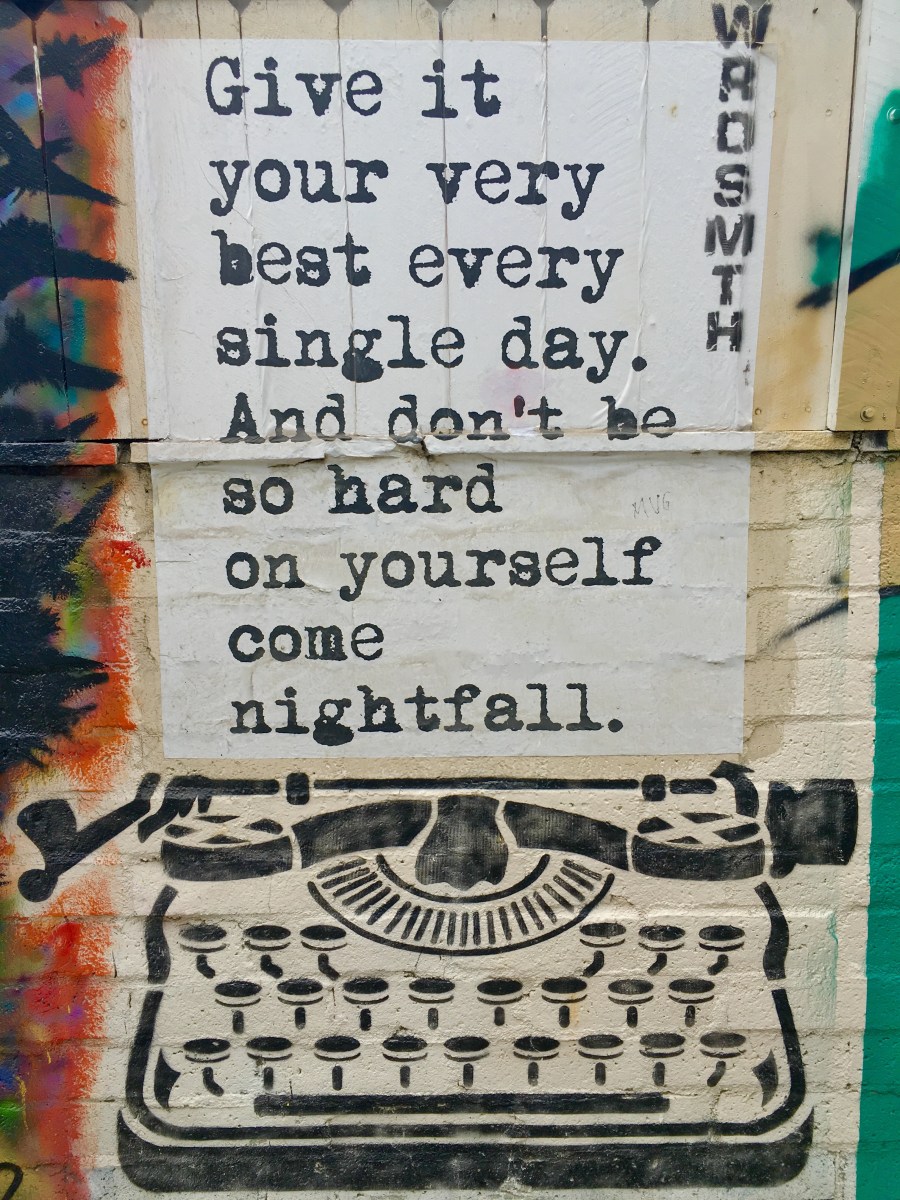 Give it
your very
best every
single day.
And don't be
so hard
on yourself
come
nightfall.
WRDSMTH
MVG